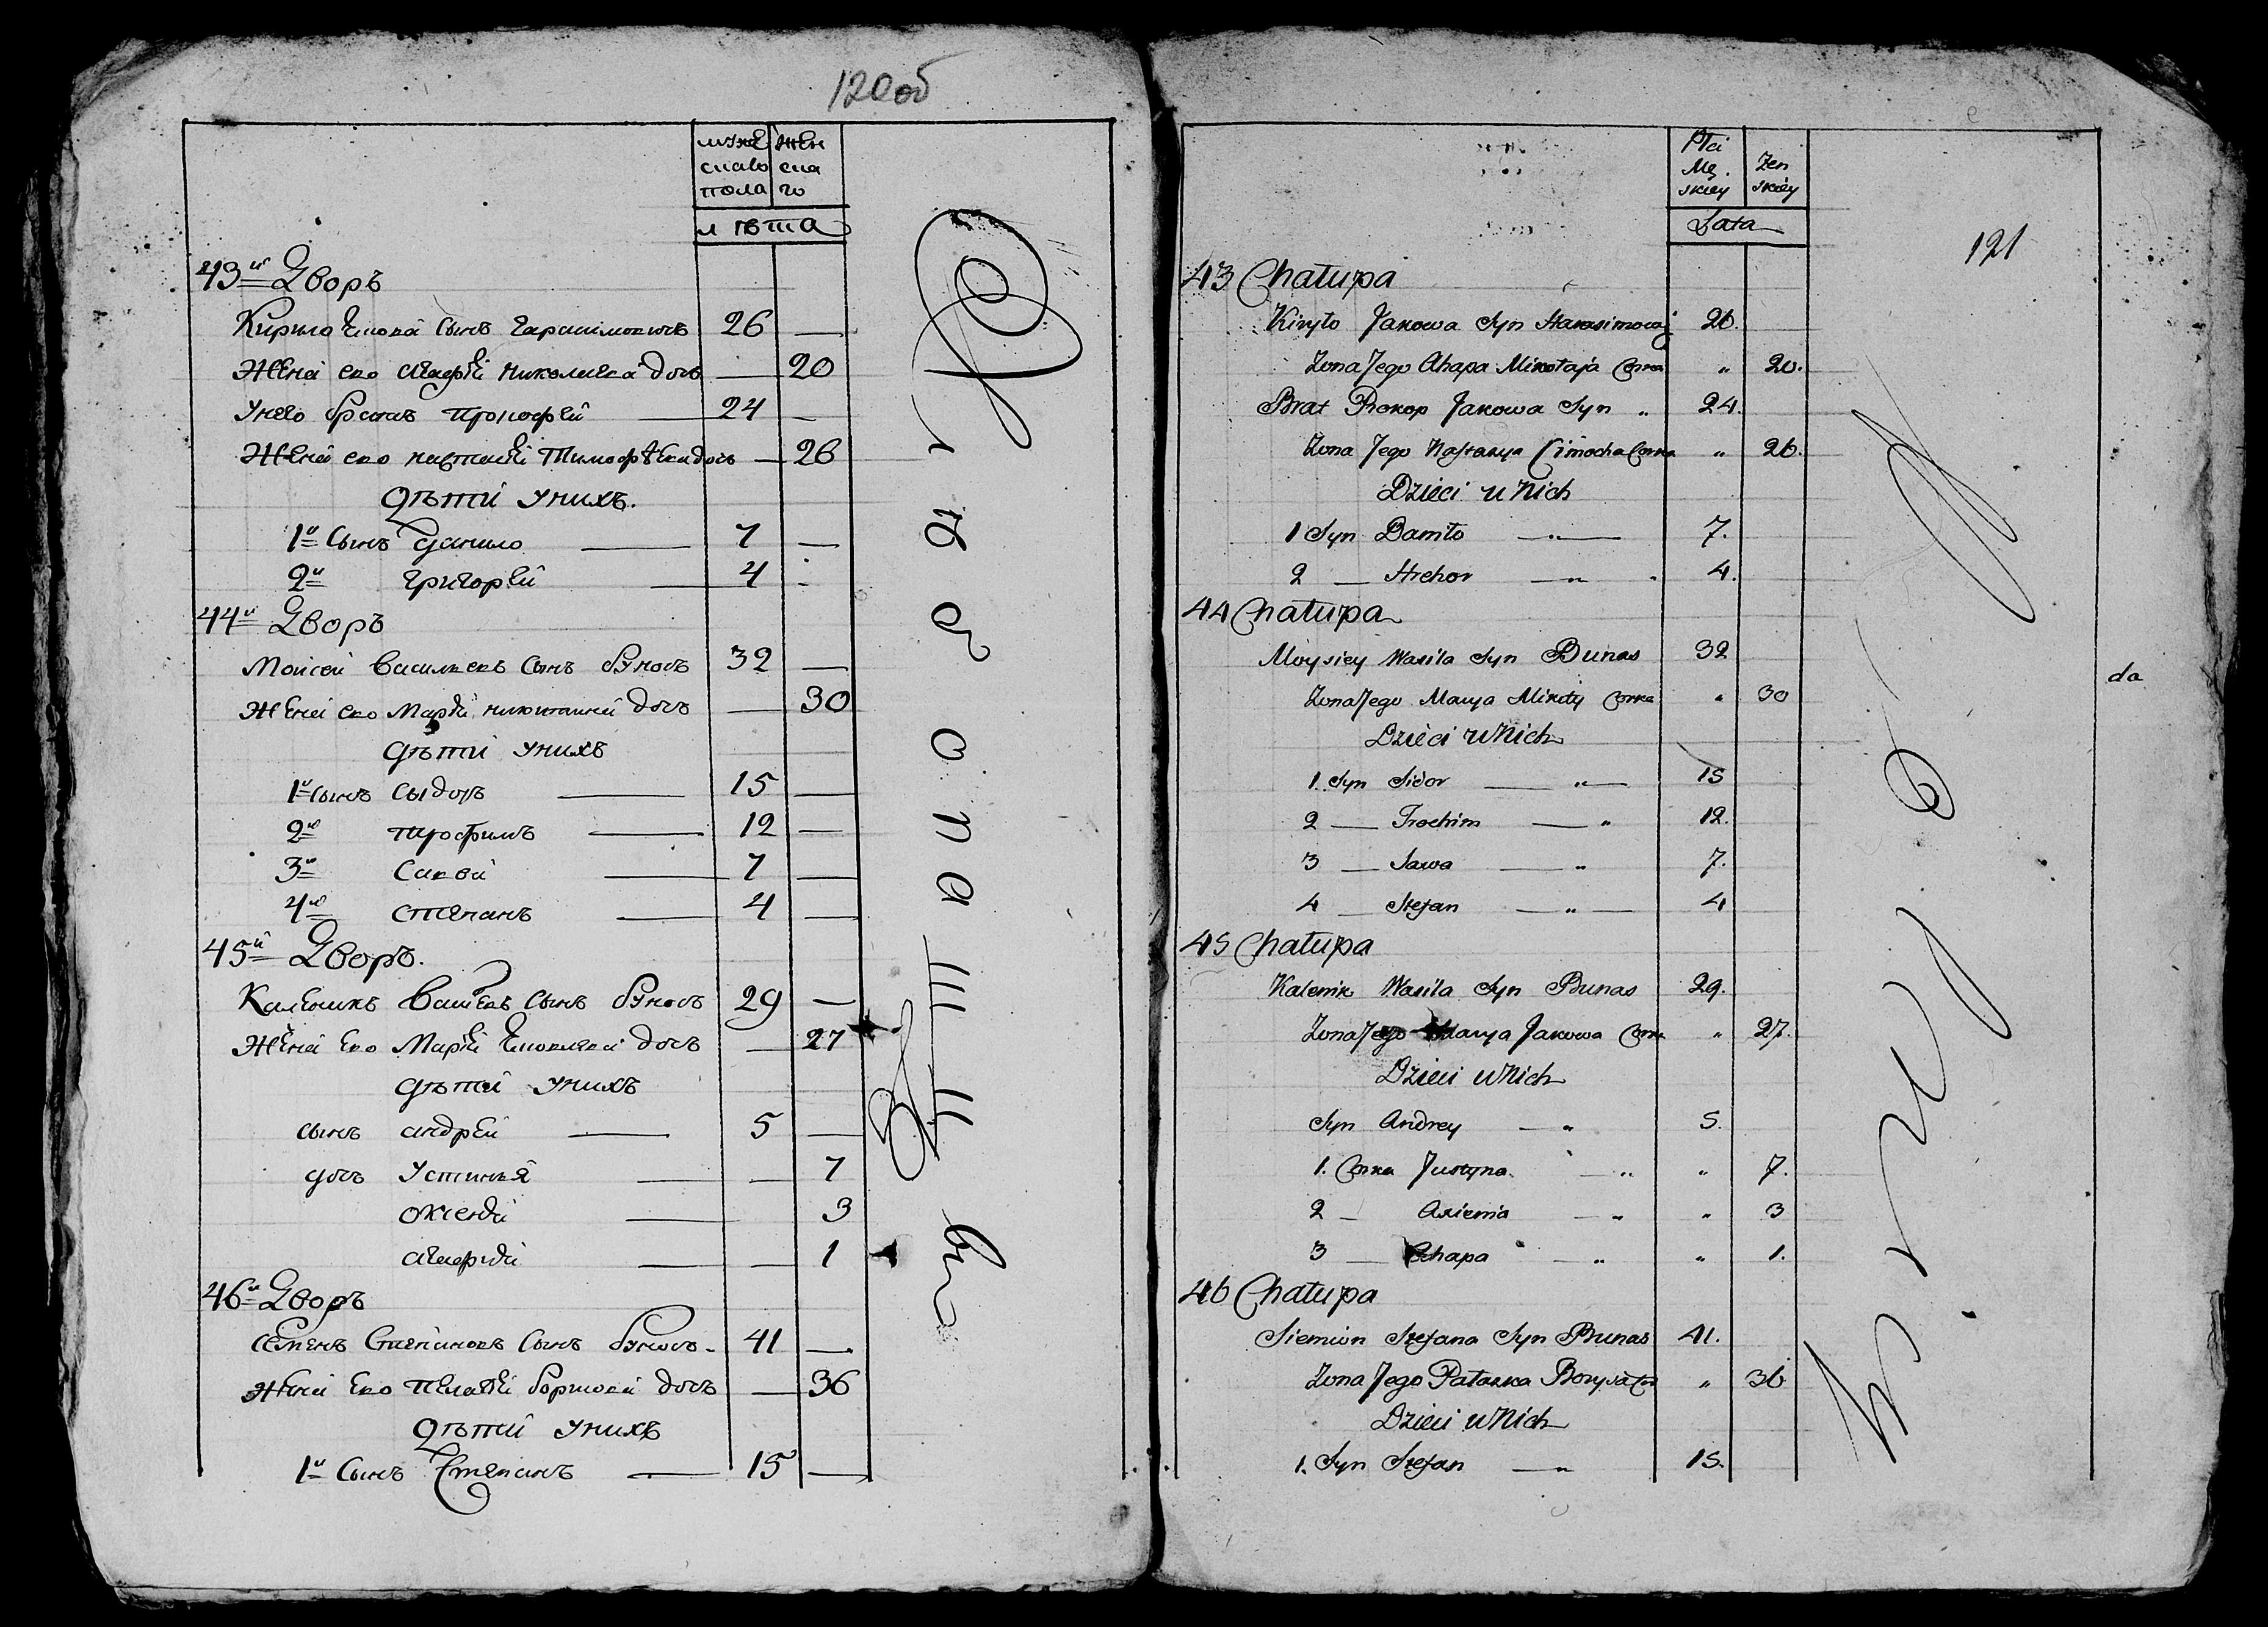 120об
муже
скаго
пола
жен
ска
го
лѣта
43й Дворъ
Кирило Якова сынъ Гарасимовичъ 26 —
Жена его Агафiя Николаева дочь — 20
У него братъ Прокофей — 24 —
Жена его Настасiя Тимофѣева дочь — 26
Дѣти у нихъ.
1й сынъ Данило — 7 —
2й Григорей — 4 —
44й Дворъ
Моисей Васильевъ сынъ Бунасъ 32 —
Жена его Марiя Никитина дочь — 30
Дѣти у нихъ
1й сынъ Сыдоръ — 15 —
2й Трофимъ — 12 —
3й Савва — 7 —
4й Степанъ — 4 —
45й Дворъ.
Каленикъ Васильевъ сынъ Бунасъ 29 —
Жена его Марiя Яковлева дочь — 27
Дѣти у нихъ
сынъ Андрей — 5 —
дочь Устинья — — 7
3
Агафiя — — 1
46й Дворъ
Семенъ Степановъ сынъ Бунасъ 41 —
Жена его Борисова дочь — 36
Дѣти у нихъ
1й сынъ Степанъ — 15 —
Płci
Mę
skiey
Zen
skiey
Lata
121
43 Chałupa
Kiryło Jakowa Syn Harasimowicz 26.
Zona Jego Ahapa Mikołaja Corka „ 20.
Brat Prokop Jakowa Syn „ 24.
Zona Jego Nastazya Cimocha Corka „ 26.
Dzieci u Nich
1 Syn Daniło — „ — 7.
2 — Hrehor — „ 4.
44 Chałupa
Moysiey Wasila Syn Bunas 32
Zona Jego Marya Mikity Corka „ 30
Dzieci u Nich
1. Syn Sidor — „ — 15
2 — Trochim — „ 12.
3 — Sawa — „ 7.
4 — Stefan — „ — 4
45 Chałupa
Kalenik Wasila Syn Bunas 29.
Zona Jego Marya Jakowa Corka „ 27.
Dzieci u Nich
Syn Andrey — „ 5.
1. Corka Justyna. — „ „ 7.
2 — Axienia — „ „ 3
3 — Ahapa — „ „ 1.
46 Chałupa
Siemion Stefana Syn Bunas 41.
Zona Jego Pałaxka Borysa Cor „ 36
Dzieci u Nich
1. Syn Stefan — „ 15.
da